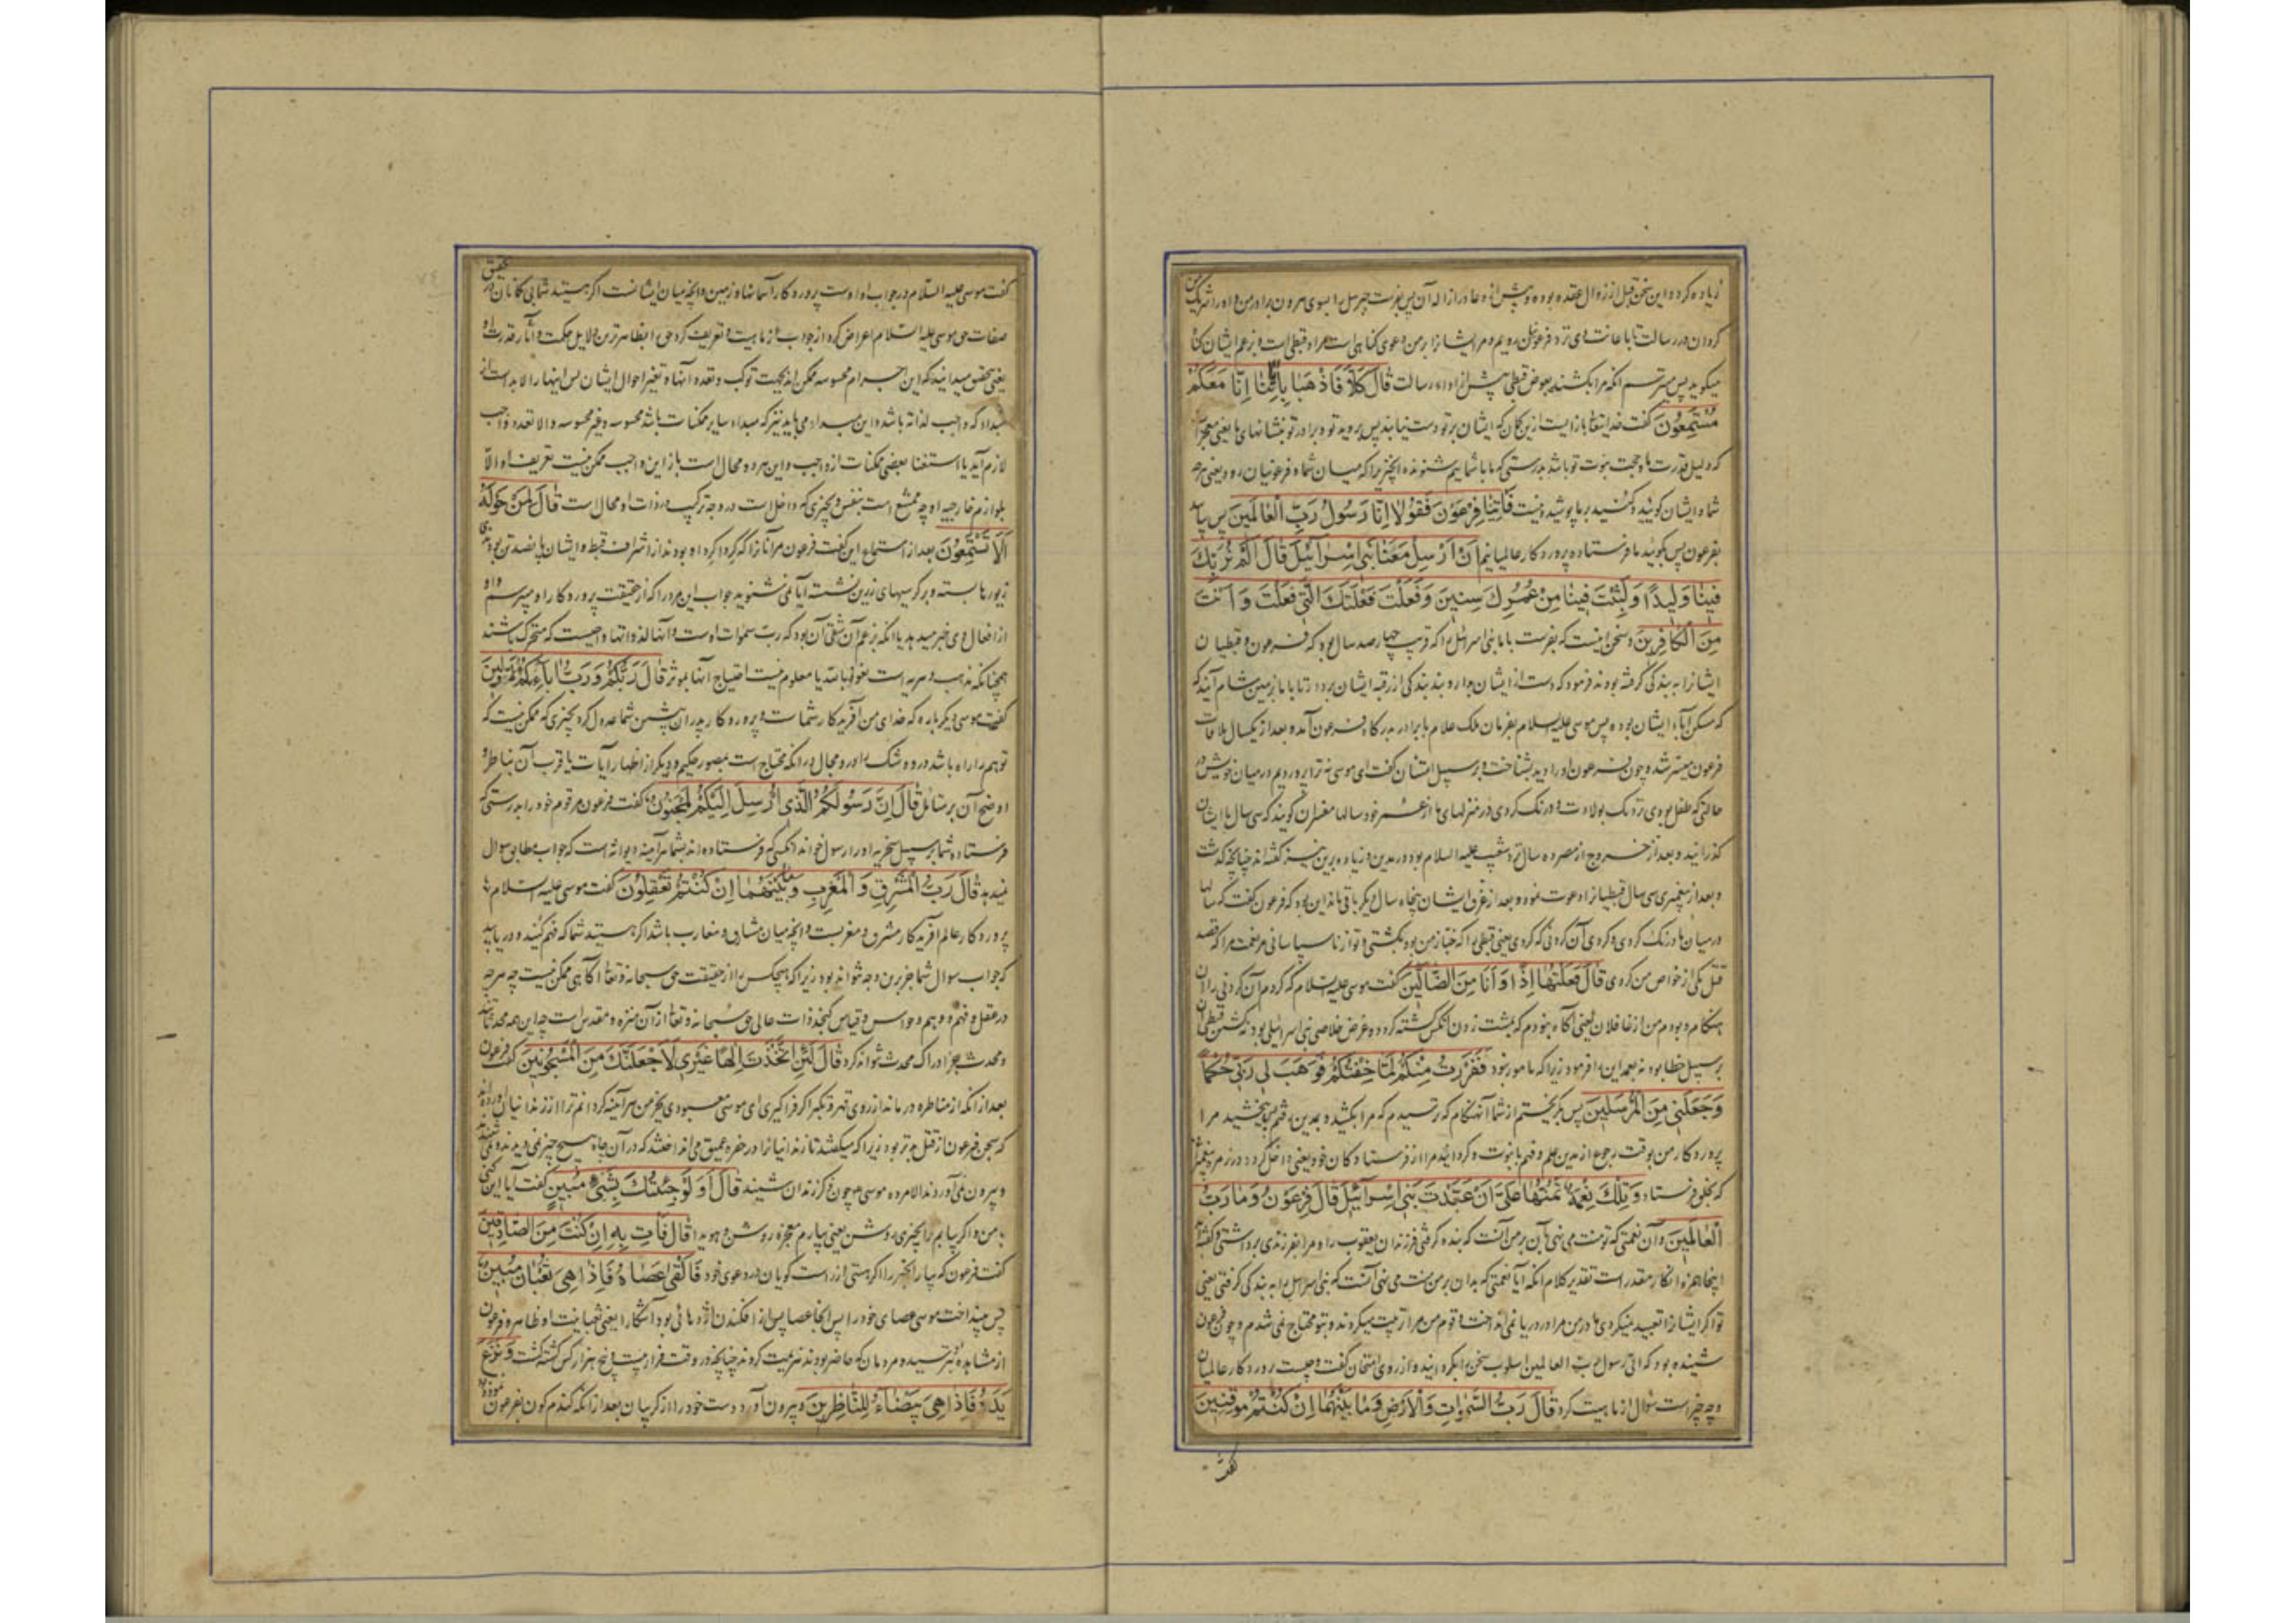 زیاده کرد و این سخن قبل از زوال عقده بوده و پیش از دعا در ازاله آن پس بفرست جبرئیل را بسوی هرون برادر من و او را شریک من
کردان در رسالت تا باعانت وی نزد فرعون رویم و مر ایشانرا بر من دعوی کناهی است مراد قبطی است و بزعم ایشان کناه
میکوید پس میترسم انکه مرا بکشند بعوض قبطی پیش از اداء رسالت قَالَ كَلَّا فَاذْهَبَا بِآيَاتِنَا إِنَّا مَعَكُمْ
مُسْتَمِعُونَ کفت خدایتعالی باز ایست ازین کمان که ایشان بر تو دست نیابند پس بروید تو و برادر تو بنشانهای ما یعنی معجزات
که دلیل قدرت ما و حجت نبوت تو باشد بدرستی که ما با شماییم شنونده انچیزیرا که میان شما و فرعونیان رود یعنی هرچه
شما و ایشان کویید و کنید بر ما پوشیده نیست فَأْتِيَا فِرْعَوْنَ فَقُولَا إِنَّا رَسُولُ رَبِّ الْعَالَمِينَ پس بیایید
بفرعون پس بکویید ما فرستاده پروردکار عالمیانیم أَنْ أَرْسِلْ مَعَنَا بَنِي إِسْرَائِيلَ قَالَ أَلَمْ نُرَبِّكَ
فِينَا وَلِيدًا وَلَبِثْتَ فِينَا مِنْ عُمُرِكَ سِنِينَ وَفَعَلْتَ فَعْلَتَكَ الَّتِي فَعَلْتَ وَأَنْتَ
مِنَ الْكَافِرِينَ و سخن اینست که بفرست با ما بنی اسرائیل را که قریب چهارصد سال بود که فرعون و قبطیان
ایشانرا به بندکی کرفته بودند فرمود که دست از ایشان بدار و بند بندکی از رقبه ایشان بردار تا با ما بزمین شام آیند که
که مسکن آباء ایشان بوده پس موسی علیه السلام بفرمان ملک علام با برادر بدرکاه فرعون آمد و بعد از یکسال ملاقات
فرعون میسر شد و چون فرعون او را دید بشناخت و بر سبیل امتنان کفت ای موسی نه ترا پروردیم در میان خویش در
حالتی که طفل بودی نزدیک بولادت و درنک کردی در منزلهای ما از عمر خود سالها مفسران کویند که سی سال با ایشان
کذرانید و بعد از خروج از مصر ده سال نزد شعیب علیه السلام بود در مدین و زیاده برین نیز کفته اند چنانچه کذشت
و بعد از پیغمبری سی سال قبطیانرا دعوت نمود و بعد از غرق ایشان پنجاه سال دیکر باقی ماند این بود که فرعون کفت که سالها
در میان ما درنک کردی و کردی آن کردنی که کردی یعنی قبطی را که خباز من بود بکشتی و تو از ناسپاسانی مر نعمت مرا که قصد
قتل یکی از خواص من کردی قَالَ فَعَلْتُهَا إِذًا وَأَنَا مِنَ الضَّالِّينَ کفت موسی علیه السلام که کردم آن کردنی را آن
هنکام و بودم من از غافلان یعنی آکاه نبودم که بمشت زدن آنکس کشته کردد و غرض خلاصی بنی اسرائیلی بود نه کشتن قبطی و آن
بر سبیل خطا بود نه بعمد این را فرمود زیرا که مامور نبود فَفَرَرْتُ مِنْكُمْ لَمَّا خِفْتُكُمْ فَوَهَبَ لِي رَبِّي حُكْمًا
وَجَعَلَنِي مِنَ الْمُرْسَلِينَ پس بکریختم از شما آنهنکام که ترسیدم که مرا بکشید و بمدین رفتم پس ببخشید مرا
پروردکار من بوقت رجوع از مدین علم و فهم یا نبوت و کردانید مرا از فرستادکان خود یعنی داخل کرد در زمره پیغمبران
که بخلق فرستاد وَتِلْكَ نِعْمَةٌ تَمُنُّهَا عَلَيَّ أَنْ عَبَّدْتَ بَنِي إِسْرَائِيلَ قَالَ فِرْعَوْنُ وَمَا رَبُّ
الْعَالَمِينَ و آن نعمتی که تو منت می نهی بآن بر من آنست که بنده کرفتی فرزندان یعقوب را و مرا بفرزندی برداشتی و کفته اند
اینجا همزه انکار مقدر است تقدیر کلام انکه آیا نعمتی که بدان بر من منت می نهی آنست که بنی اسرائیل را به بندکی کرفتی یعنی
تو اکر ایشانرا تعبید نمیکردی مادر من مرا در دریا نمی انداخت و قوم من مرا تربیت میکردند و بتو محتاج نمی شدم و چون فرعون
شنیده بود که انی رسول رب العالمین اسلوب سخن را بکردانید و از روی امتحان کفت و چیست پروردکار عالمیان
و چه چیز است سؤال از ماهیت کرد قَالَ رَبُّ السَّمٰوَاتِ وَالْأَرْضِ وَمَا بَيْنَهُمَا إِنْ كُنْتُمْ مُوقِنِينَ
کفت
کفت موسی علیه السلام در جواب او اوست پروردکار آسمانها و زمین و انچه میان ایشانست اکر هستید شما بی کمانان در تحقیق
صفات حق موسی علیه السلام اعراض کرد از جواب از ماهیت و تعریف کرد حق را بظاهرترین دلایل حکمت و آثار قدرت او
یعنی بتحقیق میدانید که این اجرام محسوسه ممکن اند بجهت ترکب و تعدد آنها و تغیر احوال ایشان پس اینها را لابد است از
مبداء که واجب لذاته باشد و این مبداء می باید نیز که مبداء سایر ممکنات باشد محسوسه و غیر محسوسه و الا تعدد واجب
لازم آید یا استغنا بعضی ممکنات از واجب و این هر دو محال است باز این واجب ممکن نیست تعریف او الا
بلوازم خارجیه او چه ممتنع است بنفس و بچیزی که داخل است در وجه ترکیب در ذات او محال است قَالَ لِمَنْ حَوْلَهُ
أَلَا تَسْتَمِعُونَ بعد از استماع این کفت فرعون مر آنانرا که کرداکرد او بودند از اشراف قبط و ایشان پانصد تن بودند
زیورها بسته و بر کرسیهای زرین نشسته آیا نمی شنوید جواب این مرد را که از حقیقت پروردکار او میپرسم و او
از افعال وی خبر میدهد یا انکه بزعم آن شقی آن بود که رب سموات اوست و آنها لذواتها واجبست که متحرک باشند
همچنانکه مذهب دهریه است نعوذ بالله یا معلوم نیست احتیاج آنها بموثر قَالَ رَبُّكُمْ وَرَبُّ آبَائِكُمُ الْأَوَّلِينَ
کفت موسی دیکر باره که خدای من آفریدکار شماست و پروردکار پدران پیشین شما عدول کرد بچیزی که ممکن نیست که
توهم را راه باشد در و شک را در و مجال در انکه محتاج است بمصور حکیم و دیکر از اظهار آیات یا قرب آن بناظر و
اوضح آن بر متامل قَالَ إِنَّ رَسُولَكُمُ الَّذِي أُرْسِلَ إِلَيْكُمْ لَمَجْنُونٌ کفت فرعون مر قوم خود را بدرستی که
فرستاده شما بر سبیل سخریه او را رسول خواند انکسی که فرستاده اند بشما هرآینه دیوانه است که جواب مطابق سوال
نمیدهد قَالَ رَبُّ الْمَشْرِقِ وَالْمَغْرِبِ وَمَا بَيْنَهُمَا إِنْ كُنْتُمْ تَعْقِلُونَ کفت موسی علیه السلام
پروردکار عالم آفریدکار مشرق و مغربست و انچه میان مشارق و مغارب باشد اکر هستید شما که فهم کنید و دریابید
که جواب سوال شما جز برین وجه نتواند بود زیرا که هیچکس را از حقیقت حق سبحانه و تعالی آکاهی ممکن نیست چه هرچه
در عقل و فهم و وهم و حواس و قیاس کنجد ذات عالی حق سبحانه و تعالی از آن منزه و مقدس است چه این همه محدثات اند
و محدث جز ادراک محدث نتواند کرد قَالَ لَئِنِ اتَّخَذْتَ إِلٰهًا غَيْرِي لَأَجْعَلَنَّكَ مِنَ الْمَسْجُونِينَ کفت فرعون
بعد از انکه از مناظره درماند از روی قهر و تکبر اکر فراکیری ای موسی معبودی بجز من هرآینه کردانم ترا از زندانیان آورده اند
که سجن فرعون از قتل بدتر بود زیرا که میکشید تا زندانیانرا در حفره عمیق می انداختند که در آن جا هیچ چیز نمی دیدند و نمی شنیدند
و بیرون نمی آوردند الا مرده موسی چون ذکر زندان شنید قَالَ أَوَلَوْ جِئْتُكَ بِشَيْءٍ مُبِينٍ کفت آیا این کنی
با من و اکر بیایم ترا بچیزی روشن یعنی بیارم معجزه روشن و هویدا قَالَ فَأْتِ بِهِ إِنْ كُنْتَ مِنَ الصَّادِقِينَ
کفت فرعون که بیار آنچیز را اکر هستی از راست کویان در دعوی خود فَأَلْقَى عَصَاهُ فَإِذَا هِيَ ثُعْبَانٌ مُبِينٌ
پس بینداخت موسی عصای خود را پس آنجا عصا پس از افکندن اژدهائی بود آشکارا یعنی ثعبانیت او ظاهر و فرعون
از مشاهده او بترسید و مردمان که حاضر بودند هزیمت کردند چنانچه در وقت فرار بیست و پنج هزار کس کشته کشت وَنَزَعَ
يَدَهُ فَإِذَا هِيَ بَيْضَاءُ لِلنَّاظِرِينَ و بیرون آورد دست خود را از کریبان بعد از انکه کندم کون بفرعون نموده بود